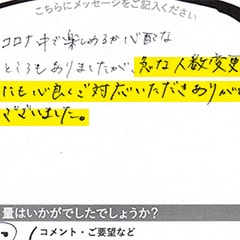 こちらにメッセージをご記入ください
コロナ中で楽しめるか心配な
ところもありましたが、急な人数変更
にも心良くご対応いただきありが
ございました。
量はいかがでしたでしょうか?
コメント・ご要望など